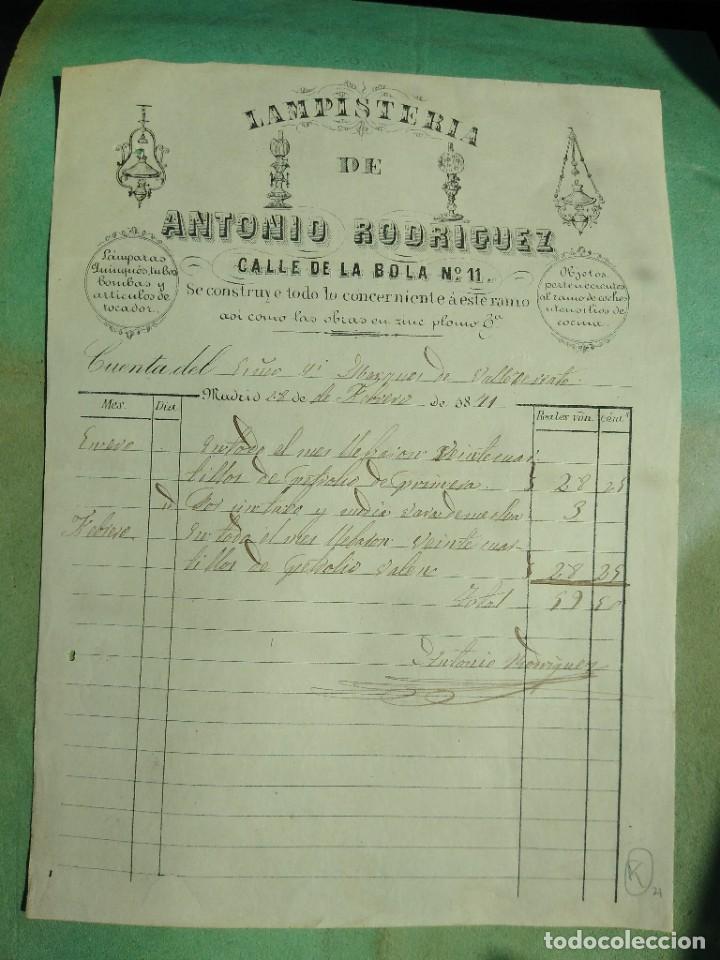 LAMPISTERIA
DE
ANTONIO RODRIGUEZ
CALLE DE LA BOLA Nº 11.
Lámparas
Quinqués, tubos
bombas y
articulos de
tocador.
Objetos
pertenecientes
al ramo de coches
utensilios de
cocina.
Se construye todo lo concerniente á este ramo
asi como las obras en zinc plomo &ª
Cuenta del Marques de
Madrid 28 de de Febrero de 18
Mes. Dia Reales von. Cént.s
Enero En todo el mes veinte cuar
tillos de petrolio de primera 28 25
Por un tuvo y media vara de mecha 3
Febrero En todo el mes llebaron veinte cuar
tillos de petrolio valen 28 25
Total 59 50
Antonio Rodriguez
K
21
todocoleccion
todocoleccion.net